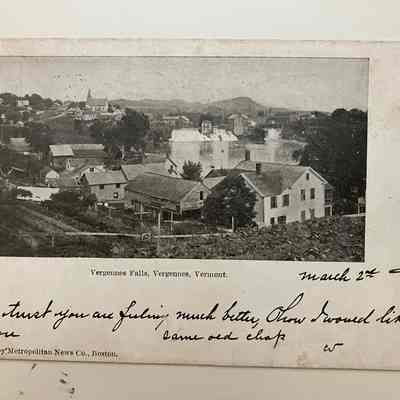 Vergennes Falls, Vergennes, Vermont.
March 2nd
trust you are feeling much better, Oh how I would lik
same old chap
w
Metropolitan News Co., Boston.